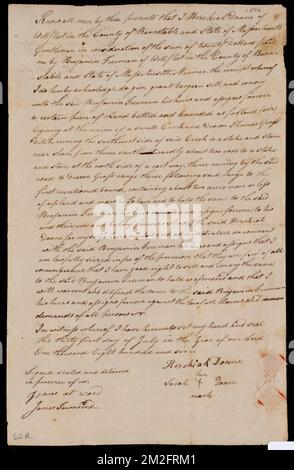 1806
Know all men by these presents that I Hezekiah Doane of
Wellfleet in the County of Barnstable and State of Massachusetts
Gentleman in consideration of the sum of twenty Dollars paid
me by Benjamin Freeman of Wellfleet in the County of Barn
stable and State of Massachusetts Mariner the receipt whereof
I do hereby acknowledge, do give grant bargain sell and convey
unto the said Benjamin Freeman his heirs and assigns forever
a certain piece of Land bounded as follows
begining at the union of a small Creek and Deacon Thomas Gross
ditch running the southwest side of said Creek to a stake and stone
near from thence two rods to a stake
and stone at the north side of a cart way, thence running by the said
road to Deacon Gross range thence following said range to the
first mentioned bound, containing about two acres more or less
of upland and marsh. To have and to hold the same to the said
Benjamin Freeman his heirs and assigns forever, to his
and their use I the said Hezekiah
Doane for myself do covenant
with the said Benjamin Freeman his heirs and assigns that I
am lawfully seized in fee of the premises that they are free of all
incumbrance that I have good right to sell and convey the same
to the said Benjamin Freeman to hold as aforesaid and that I
will warrant and defend the same to the said Benjamin Freeman
his heirs and assigns forever against the lawful claims and
demands of all persons
In witness whereof I have hereunto set my hand and seal
this thirty first day of July in the year of our Lord
One thousand Eight hundred and six
Hezekiah Doane
Signed sealed and delivered
in presence of us,
her
Sarah X Doane
mark
James Townsend
62R
alamy
Image ID: 2M2FRM1
www.alamy.com